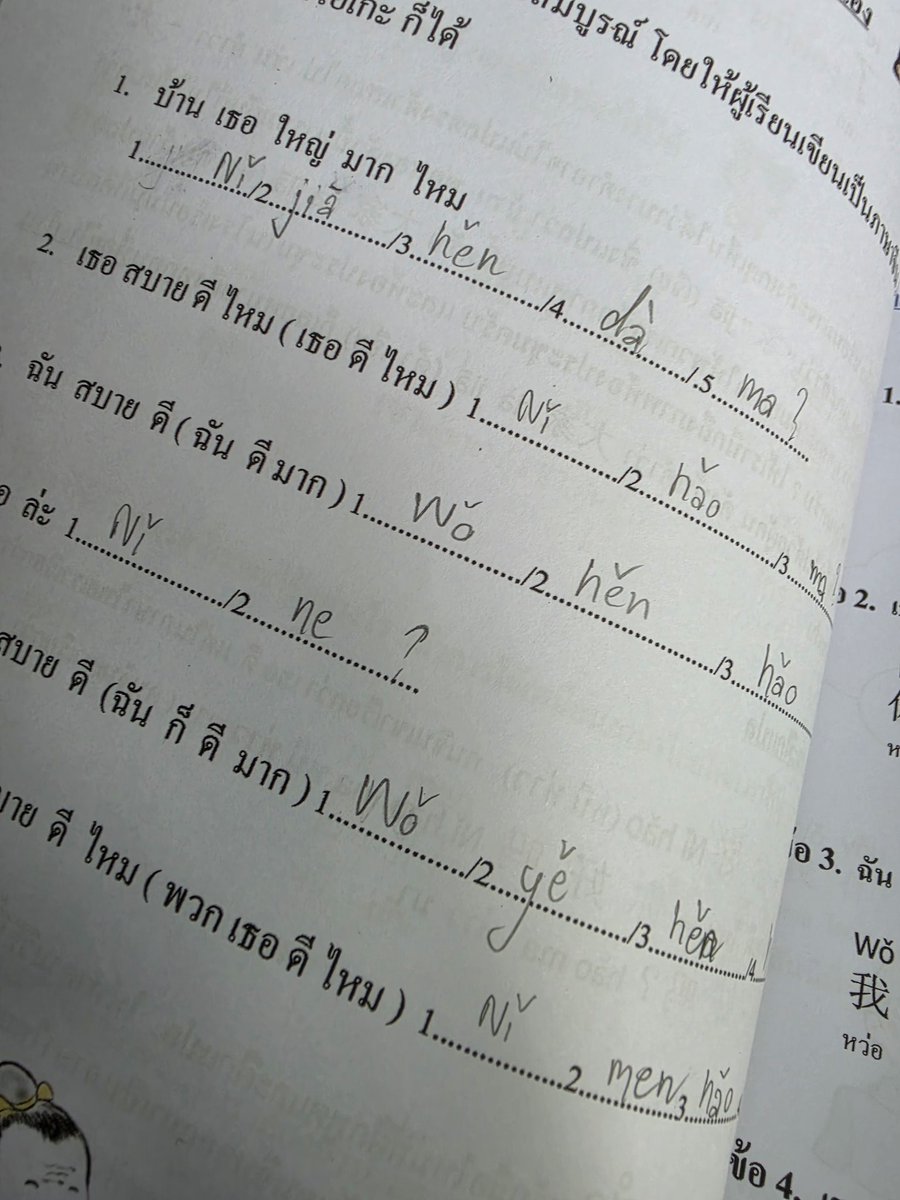 สมบูรณ์ โดยให้ผู้เรียนเขียนเป็นภาษา
ก็ได้
1. บ้าน เธอ ใหญ่ มาก ไหม
1. Nǐ /2. jiā /3. hěn /4. dà /.5. ma ?
2. เธอ สบาย ดี ไหม ( เธอ ดี ไหม ) 1. Nǐ /2. hǎo /3. ma ?
ฉัน สบาย ดี ( ฉัน ดี มาก ) 1. Wǒ /2. hěn /3. hǎo
ล่ะ 1. Nǐ /2. ne ?
สบาย ดี (ฉัน ก็ ดี มาก ) 1. Wǒ /2. yě /3. hěn /4.
ดี ไหม ( พวก เธอ ดี ไหม ) 1. Nǐ 2. men 3 hǎo
1.
2.
ข้อ 3. ฉัน
Wǒ
我
หว่อ
ข้อ 4.